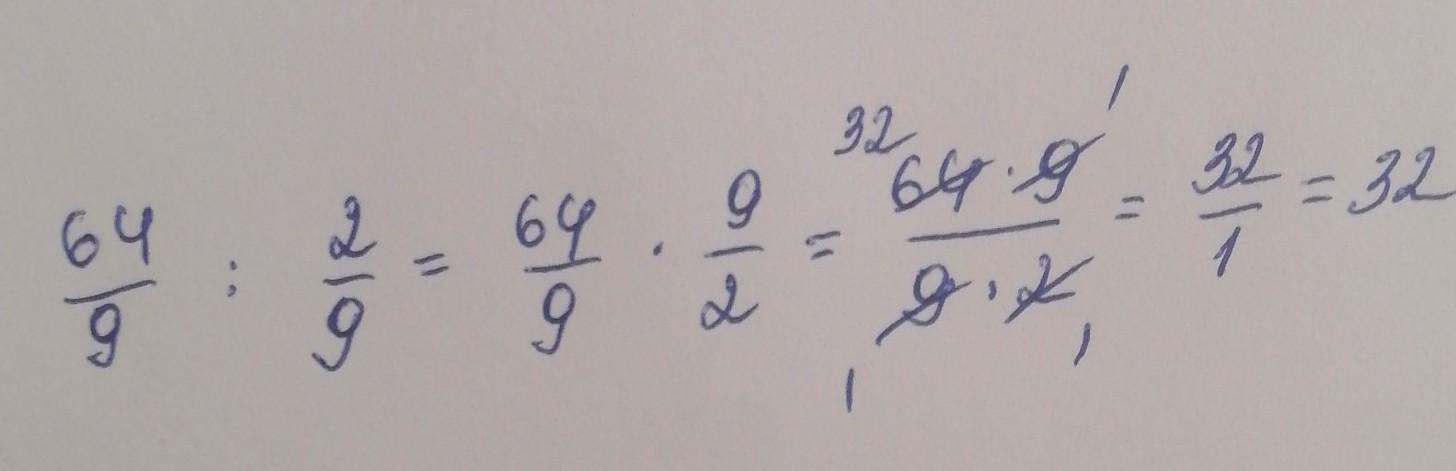 64/9 : 2/9 = 64/9 · 9/2 = 32 64 · 9 1 / 1 9 · 2 1 = 32/1 = 32